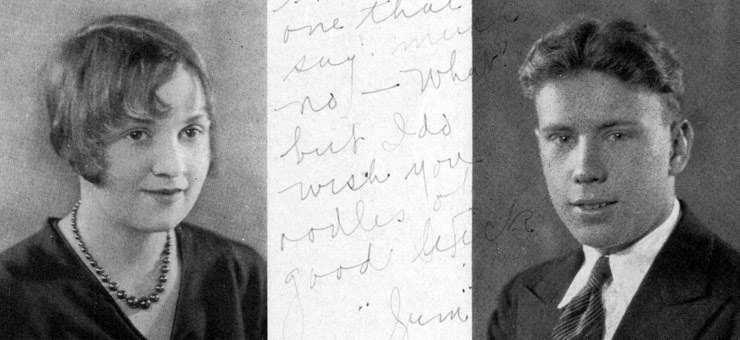 one that
say
no — what!
but I do
wish you
oodles of
good luck
"Jim"